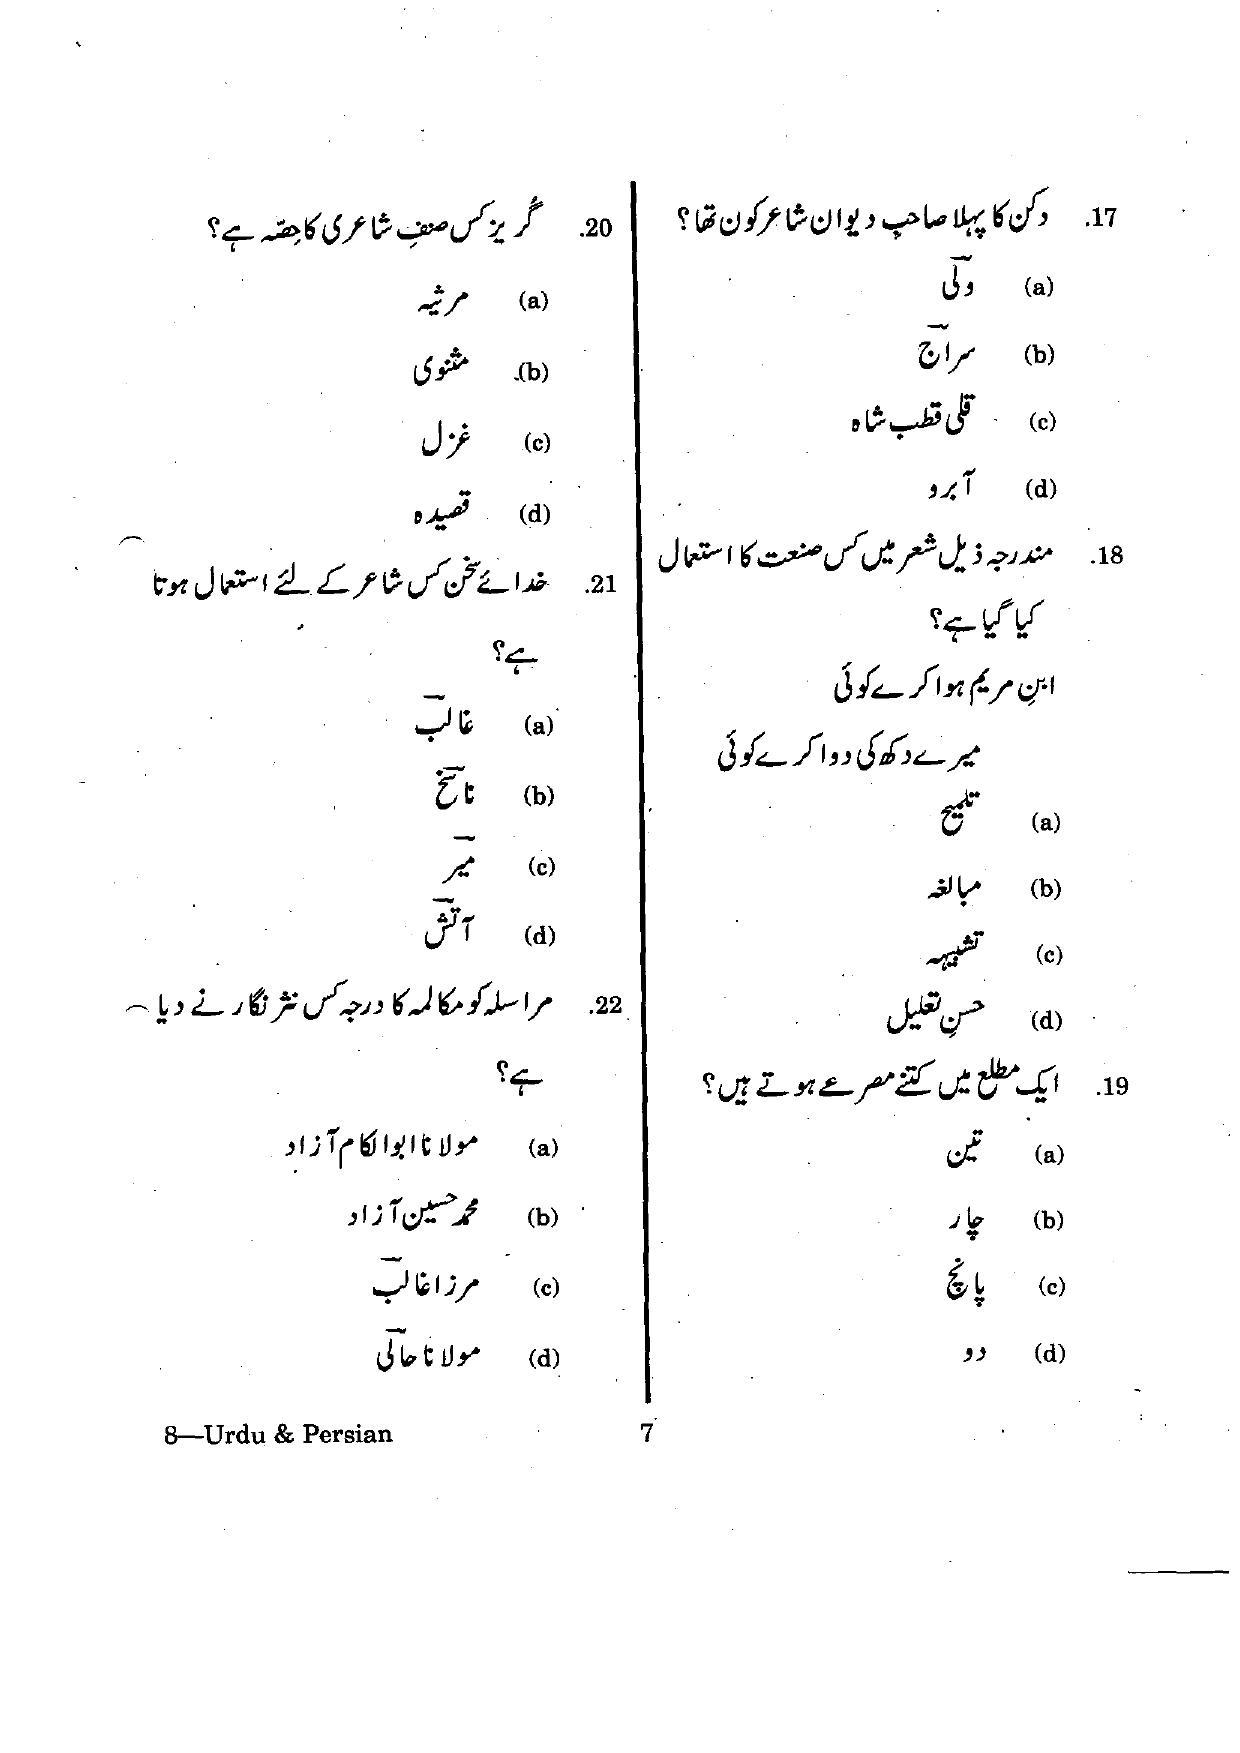 17. دکن کا پہلا صاحبِ دیوان شاعر کون تھا؟
(a) ولیؔ
(b) سراجؔ
(c) قلی قطب شاہ
(d) آبرو
18. مندرجہ ذیل شعر میں کس صنعت کا استعمال
کیا گیا ہے؟
ابنِ مریم ہوا کرے کوئی
میرے دکھ کی دوا کرے کوئی
(a) تلمیح
(b) مبالغہ
(c) تشبیہہ
(d) حسنِ تعلیل
19. ایک مطلع میں کتنے مصرعے ہوتے ہیں؟
(a) تین
(b) چار
(c) پانچ
(d) دو
20. گریز کس صنفِ شاعری کا حصّہ ہے؟
(a) مرثیہ
(b) مثنوی
(c) غزل
(d) قصیدہ
21. خدائے سخن کس شاعر کے لئے استعمال ہوتا
ہے؟
(a) غالبؔ
(b) ناسخؔ
(c) میرؔ
(d) آتشؔ
22. مراسلہ کو مکالمہ کا درجہ کس نثر نگار نے دیا
ہے؟
(a) مولانا ابوالکلام آزاد
(b) محمد حسین آزاد
(c) مرزا غالبؔ
(d) مولانا حالیؔ
8—Urdu & Persian
7